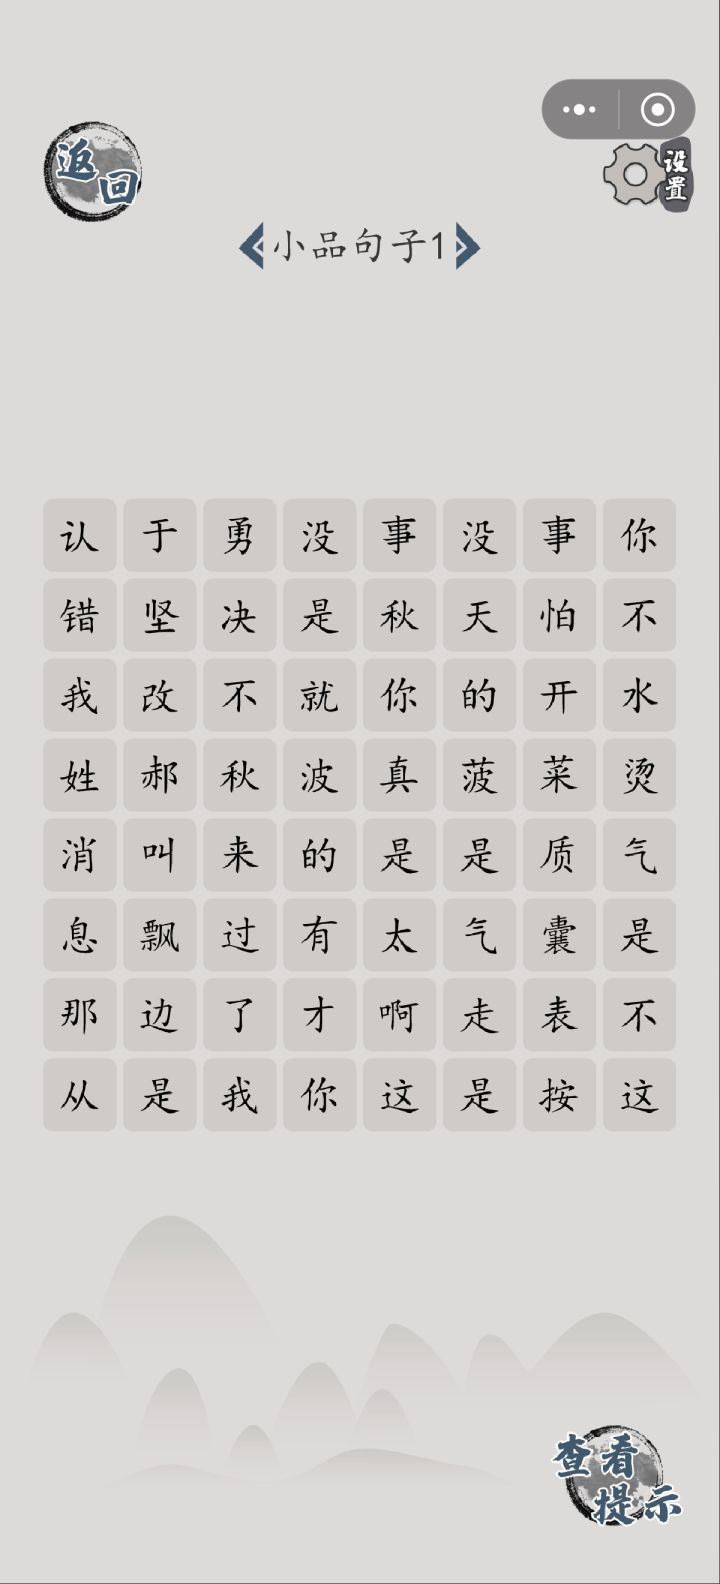 返回
设置
小品句子1
认于勇没事没事你
错坚决是秋天怕不
我改不就你的开水
姓郝秋波真菠菜烫
消叫来的是是质气
息飘过有太气囊是
那边了才啊走表不
从是我你这是按这
查看
提示